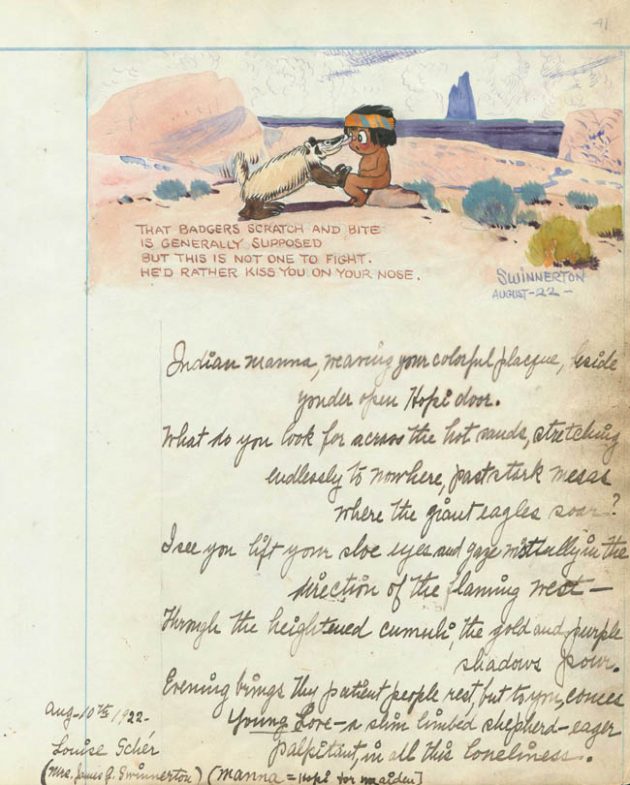 41
THAT BADGERS SCRATCH AND BITE
IS GENERALLY SUPPOSED
BUT THIS IS NOT ONE TO FIGHT.
HE'D RATHER KISS YOU ON YOUR NOSE.
SWINNERTON
AUGUST-22-
Indian manna, weaving your colorful placque, beside
yonder open Hopi door.
What do you look for across the hot sands, stretching
endlessly to nowhere, past stark mesas
where the giant eagles soar?
I see you lift your sloe eyes and gaze wistfully in the
direction of the flaming west—
Through the heightened cumuli, the gold and purple
shadows pour.
Evening brings thy patient people rest, but to you, comes
Young Love - a slim limbed shepherd - eager
palpitant, in all this loneliness.
Aug-10th/1922-
Louise Schér
(Mrs. James G. Swinnerton) (Manna = Hopi for maiden)